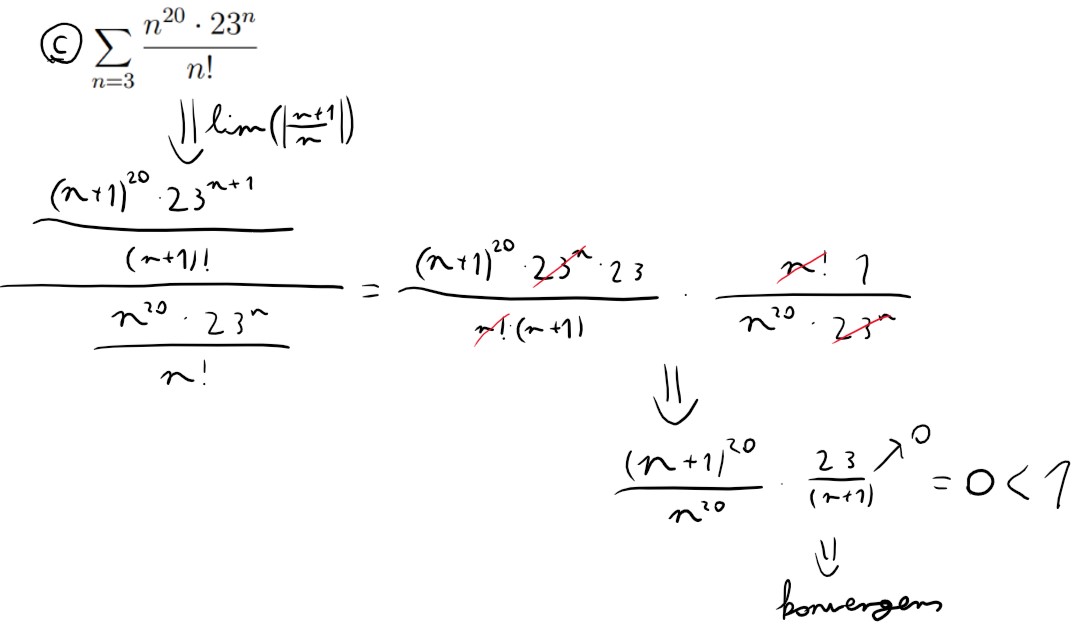 ⓒ ∑_{n=3} (n^{20} · 23^n) / n!
⇓ lim(|n+1 / n|)
((n+1)^{20} · 23^{n+1} / (n+1)!) / (n^{20} · 23^n / n!) = ((n+1)^{20} · 23^n · 23) / (n! · (n+1)) · (n! 1) / (n^{20} · 23^n)
⇓
(n+1)^{20} / n^{20} · 23 / (n+1) ↗ 0 = 0 < 1
⇓
konvergens